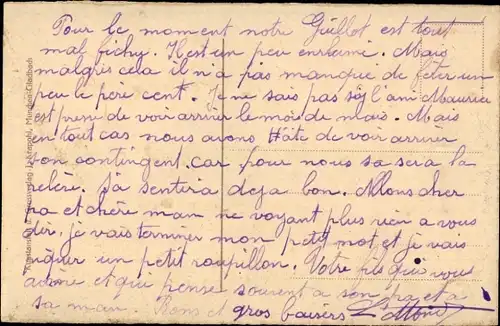 Pour le moment notre Guillot est tout
mal fichy. Il est un peu enrhumé. Mais
malgris cela il n'a pas manqué de fêter un
peu le père cent. Je ne sais pas si l'ami Maurice
est pressé de voir arriver le mois de mais. Mais
en tout cas nous avons Hâte de voir arriver
son contingent. car pour nous sa sera la
relève. Sa sentira deja bon. Allons cher
pa et chère man ne voyant plus rien a vous
dir. je vais terminer mon petit mot et je vais
piquer un petit roupillon. Votre fils qui vous
adore et qui pense souvent a son pa et a
sa man. Bons et gros baisers
München-Gladbach